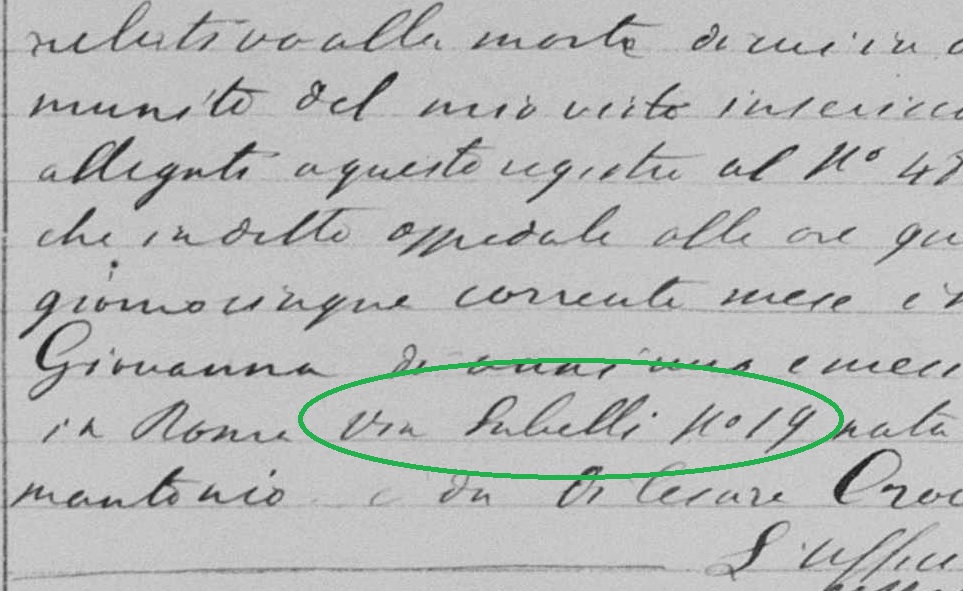 relativo alla morte di cui in
munito del mio visto inserisco
allegato a questo registro al N° 48
che in detto ospedale alle ore
giorno cinque corrente mese
Giovanna di anni uno e mesi
in Roma via Sabelli N° 19 nata
mantonio e da Di Cesare
L'uffici